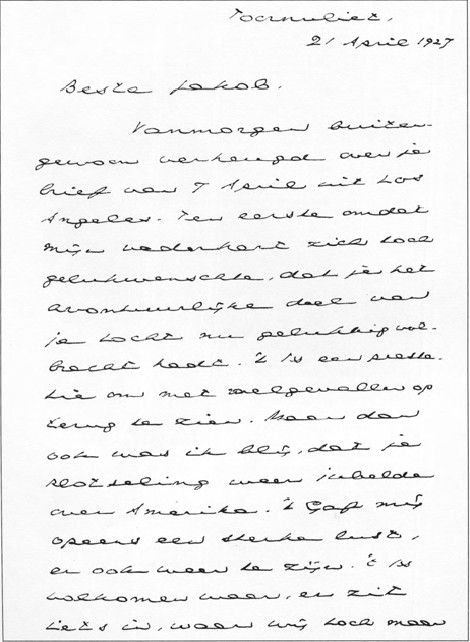 Toornvliet,
21 April 1927
Beste Jakob.
Vanmorgen buiten-
gewoon verheugd over je
brief van 7 April uit Los
Angeles. Ten eerste omdat
mijn vaderhart zich toch
gelukwenschte, dat je het
avontuurlijke deel van
je tocht nu gelukkig vol-
bracht hadt. 't Is een
tie om met welgevallen op
terug te zien. Maar dan
ook was ik blij, dat je
slotseling weer jubelde
over Amerika. 't Gaf mij
opeens een sterke lust,
er ook weer te zijn. 't Is
volkomen waar, er zit
iets in, waar wij toch maar